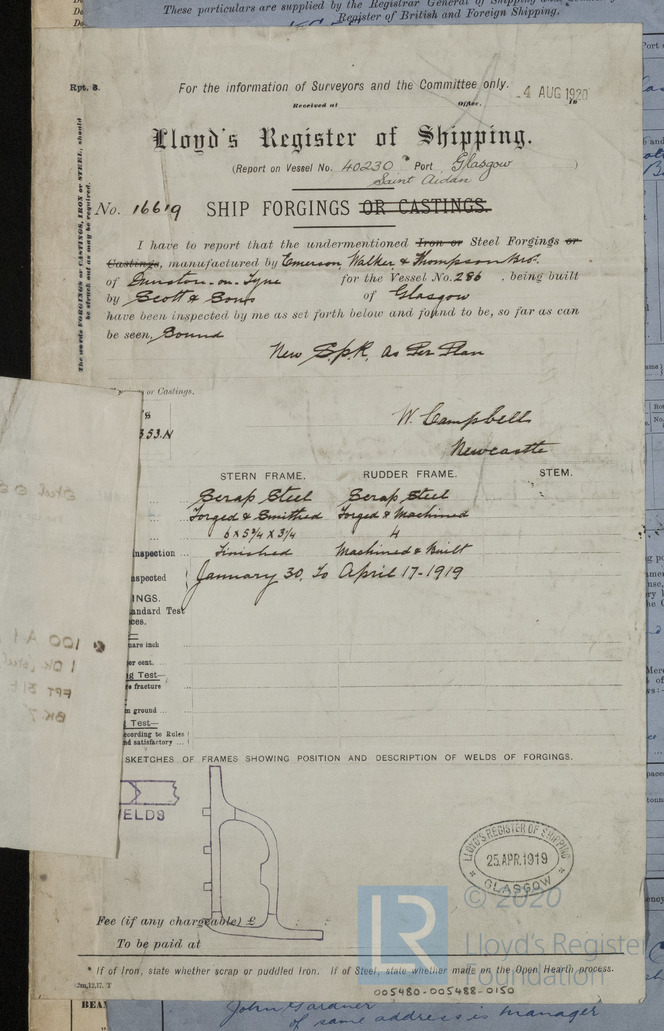 These particulars are supplied by the Registrar General of Shipping
Register of British and Foreign Shipping.
Rpt. 8.
For the information of Surveyors and the Committee only.
Received at Office, 4 AUG 1920
Lloyd's Register of Shipping.
(Report on Vessel No. 40230 Port Glasgow )
Saint Aidan
The words FORGINGS or CASTINGS, IRON or STEEL, should be struck out as may be required.
No. 16619 SHIP FORGINGS OR CASTINGS.
I have to report that the undermentioned Iron or Steel Forgings or
Castings, manufactured by Emerson, Walker & Thompson Bros.
of Dunston-on-Tyne for the Vessel No. 286 , being built
by Scott & Sons of Glasgow
have been inspected by me as set forth below and found to be, so far as can
be seen, Sound
New as Per Plan
or Castings.
353.N
W. Campbell
Newcastle
STERN FRAME. RUDDER FRAME. STEM.
Scrap Steel Scrap Steel
Forged & Smithed Forged & Machined
6 x 5¾ x 3¼ 4
inspection Finished Machined & Built
spected January 30, To April 17-1919
INGS.
tandard Test
ces.
uare inch
per cent.
g Test—
re fracture
m ground
g Test—
ccording to Rules
nd satisfactory
100 A1
SKETCHES OF FRAMES SHOWING POSITION AND DESCRIPTION OF WELDS OF FORGINGS.
ELDS
LLOYD'S REGISTER OF SHIPPING
25.APR.1919
GLASGOW
© 2020
LR
Lloyd's Register
Foundation
Fee (if any chargeable) £
To be paid at
* If of Iron, state whether scrap or puddled Iron. If of Steel, state whether made on the Open Hearth process.
005480-005488-0150
BEAM
John Gardner
of same address is manager